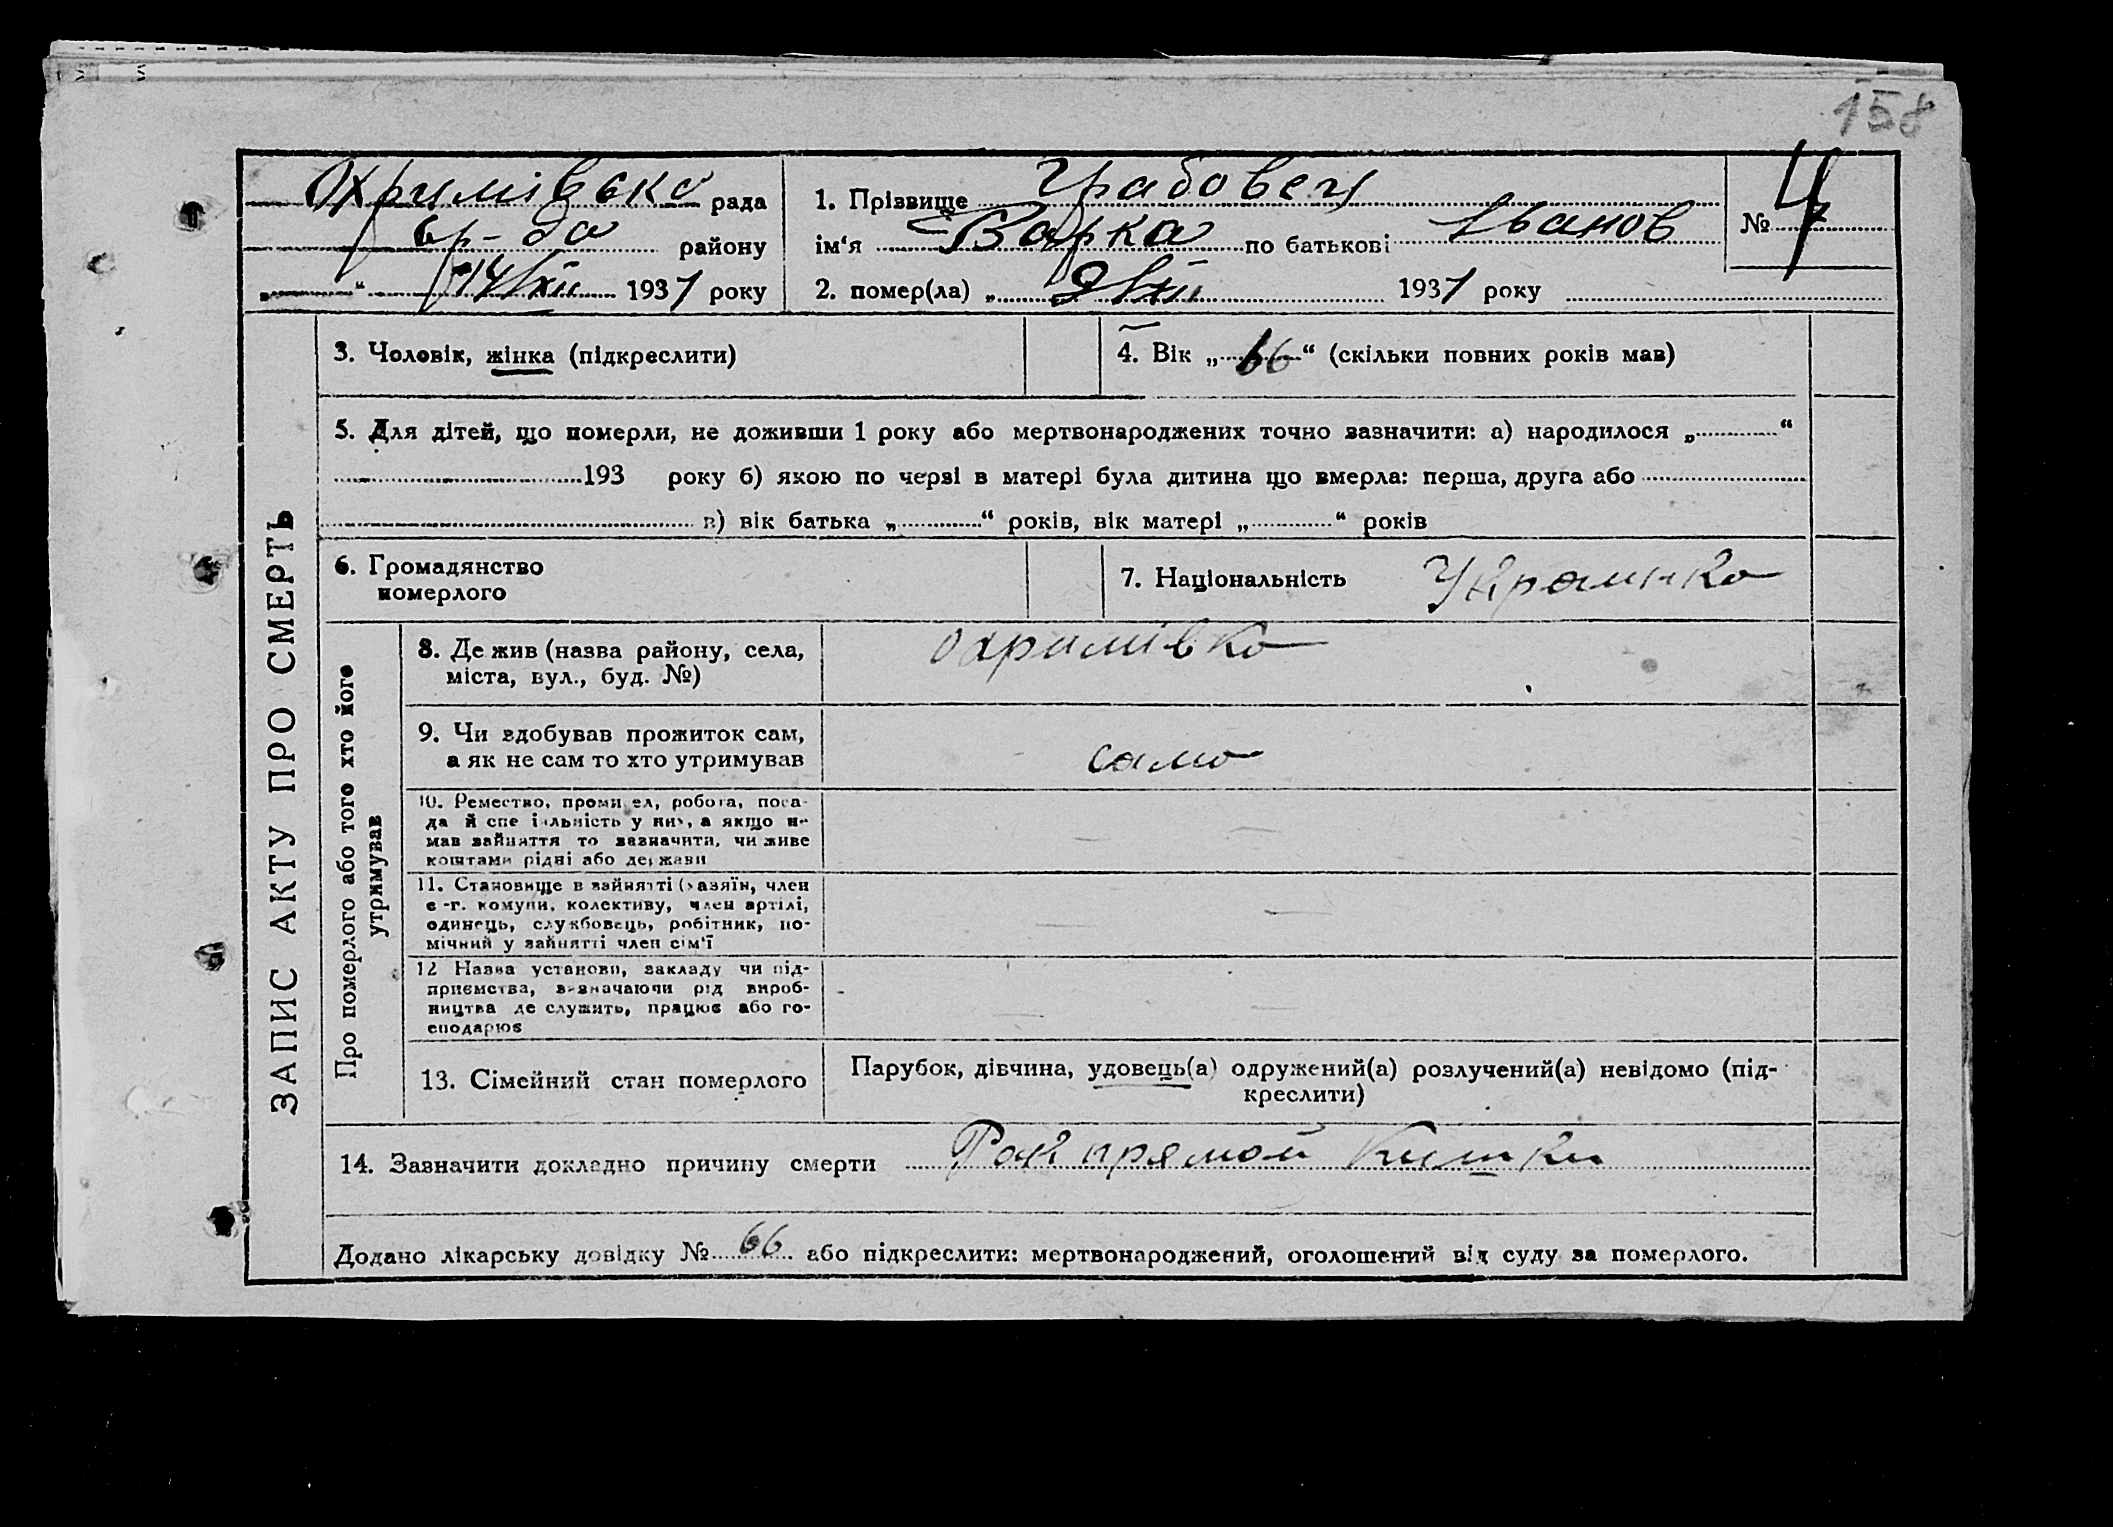 158
Охримівська рада
Бр-да району
„ “ 14/XII 1937 року
1. Прізвище Грабовец
ім‘я Варка по батькові Іванов
№ 7
2. помер(ла) „ 9/XII 1937 року
ЗАПИС АКТУ ПРО СМЕРТЬ
3. Чоловік, жінка (підкреслити)
4. Вік „66“ (скільки повних років мав)
5. Для дітей, що померли, не доживши 1 року або мертвонароджених точно зазначити: а) народилося „ “
193 року б) якою по черзі в матері була дитина що вмерла: перша, друга або
в) вік батька „ “ років, вік матері „ “ років
6. Громадянство
померлого
7. Національність Украинка
Про померлого або того хто його
утримував
8. Де жив (назва району, села,
міста, вул., буд. №)
Охримівка
9. Чи здобував прожиток сам,
а як не сам то хто утримував
сама
10. Ремество, промисел, робота, поса-
да й спеціяльність у них, а якщо не
мав зайняття то зазначити, чи живе
коштами рідні або держави
11. Становище в зайнятті (хазяїн, член
с.-г. комуни, колективу, член артілі,
одинець, службовець, робітник, по-
мічний у зайнятті член сім‘ї
12 Назва установи, закладу чи під-
приємства, визначаючи рід вироб-
ництва де служить, працює або го-
сподарює
13. Сімейний стан померлого
Парубок, дівчина, удовець(а) одружений(а) розлучений(а) невідомо (під-
креслити)
14. Зазначити докладно причину смерти Рак прямой кишки
Додано лікарську довідку № 66 або підкреслити: мертвонароджений, оголошений від суду за померлого.